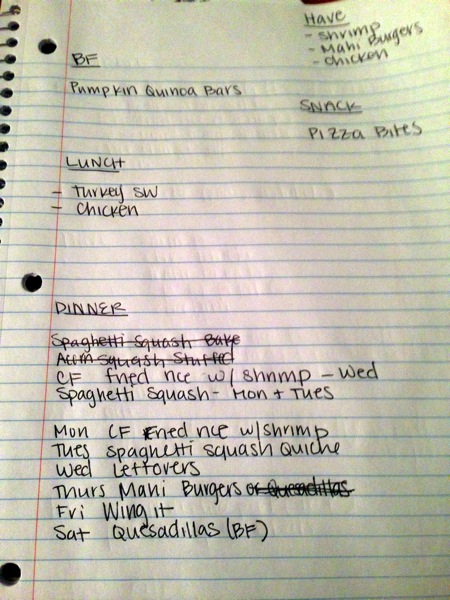 HAVE
- Shrimp
- Mahi Burgers
- Chicken
BF
Pumpkin Quinoa Bars
SNACK
Pizza Bites
LUNCH
- Turkey SW
- Chicken
DINNER
Spaghetti Squash Bake
Acorn Squash Stuffed
CF fried rice w/ shrimp - Wed
Spaghetti Squash - Mon + Tues
Mon CF Fried rice w/shrimp
Tues Spaghetti Squash Quiche
Wed Leftovers
Thurs Mahi Burgers or Quesadillas
Fri Wing it
Sat Quesadillas (BF)